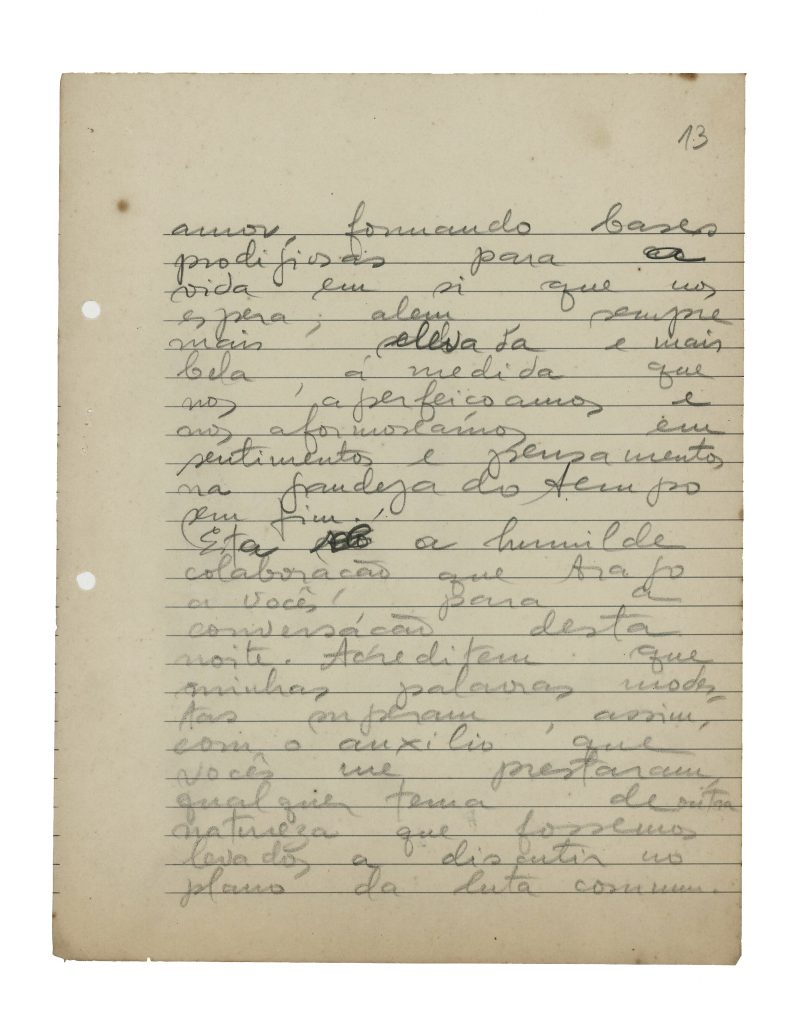 13
amor, formando bases
prodigiosas para a
vida em si que nos
espera, alem sempre
mais elevada e mais
bela, á medida que
nos aperfeiçoamos e
nos aformoseamos em
sentimentos e pensamentos
na grandeza do tempo
sem fim.
Esta a humilde
colaboração que trago
a vocês para a
conversação desta
noite. Acreditem que
minhas palavras modes
tas superam, assim,
com o auxilio que
vocês me prestaram,
qualquer tema de outra
natureza que fossemos
levados a discutir no
plano da luta commum.